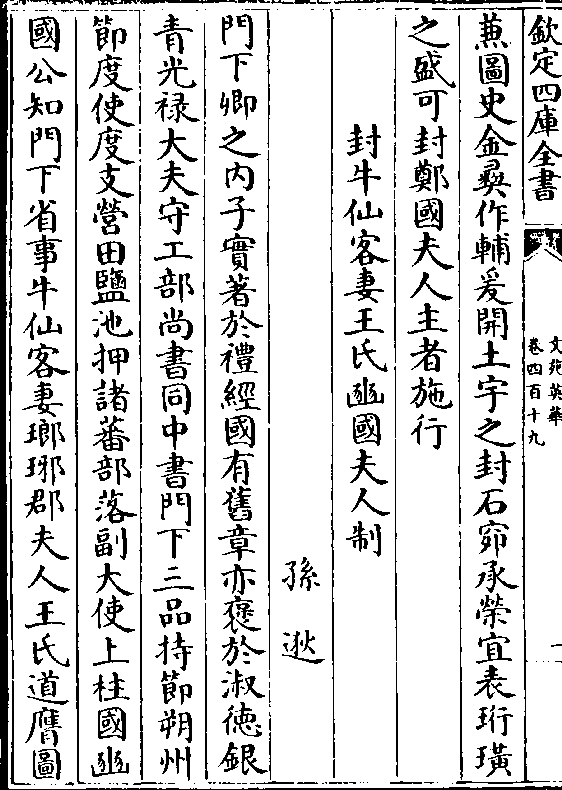 欽定四庫全書
文苑英華
卷四百十九
一
蕙圖史金彛作輔爰開土宇之封石窌承榮宜表珩璜
之盛可封鄭國夫人主者施行
封牛仙客妻王氏豳國夫人制
孫逖
門下卿之內子實著於禮經國有舊章亦褒於淑徳銀
青光禄大夫守工部尚書同中書門下三品持節朔州
節度使度支營田鹽池押諸蕃部落副大使上柱國豳
國公知門下省事牛仙客妻瑯琊郡夫人王氏道膺圖